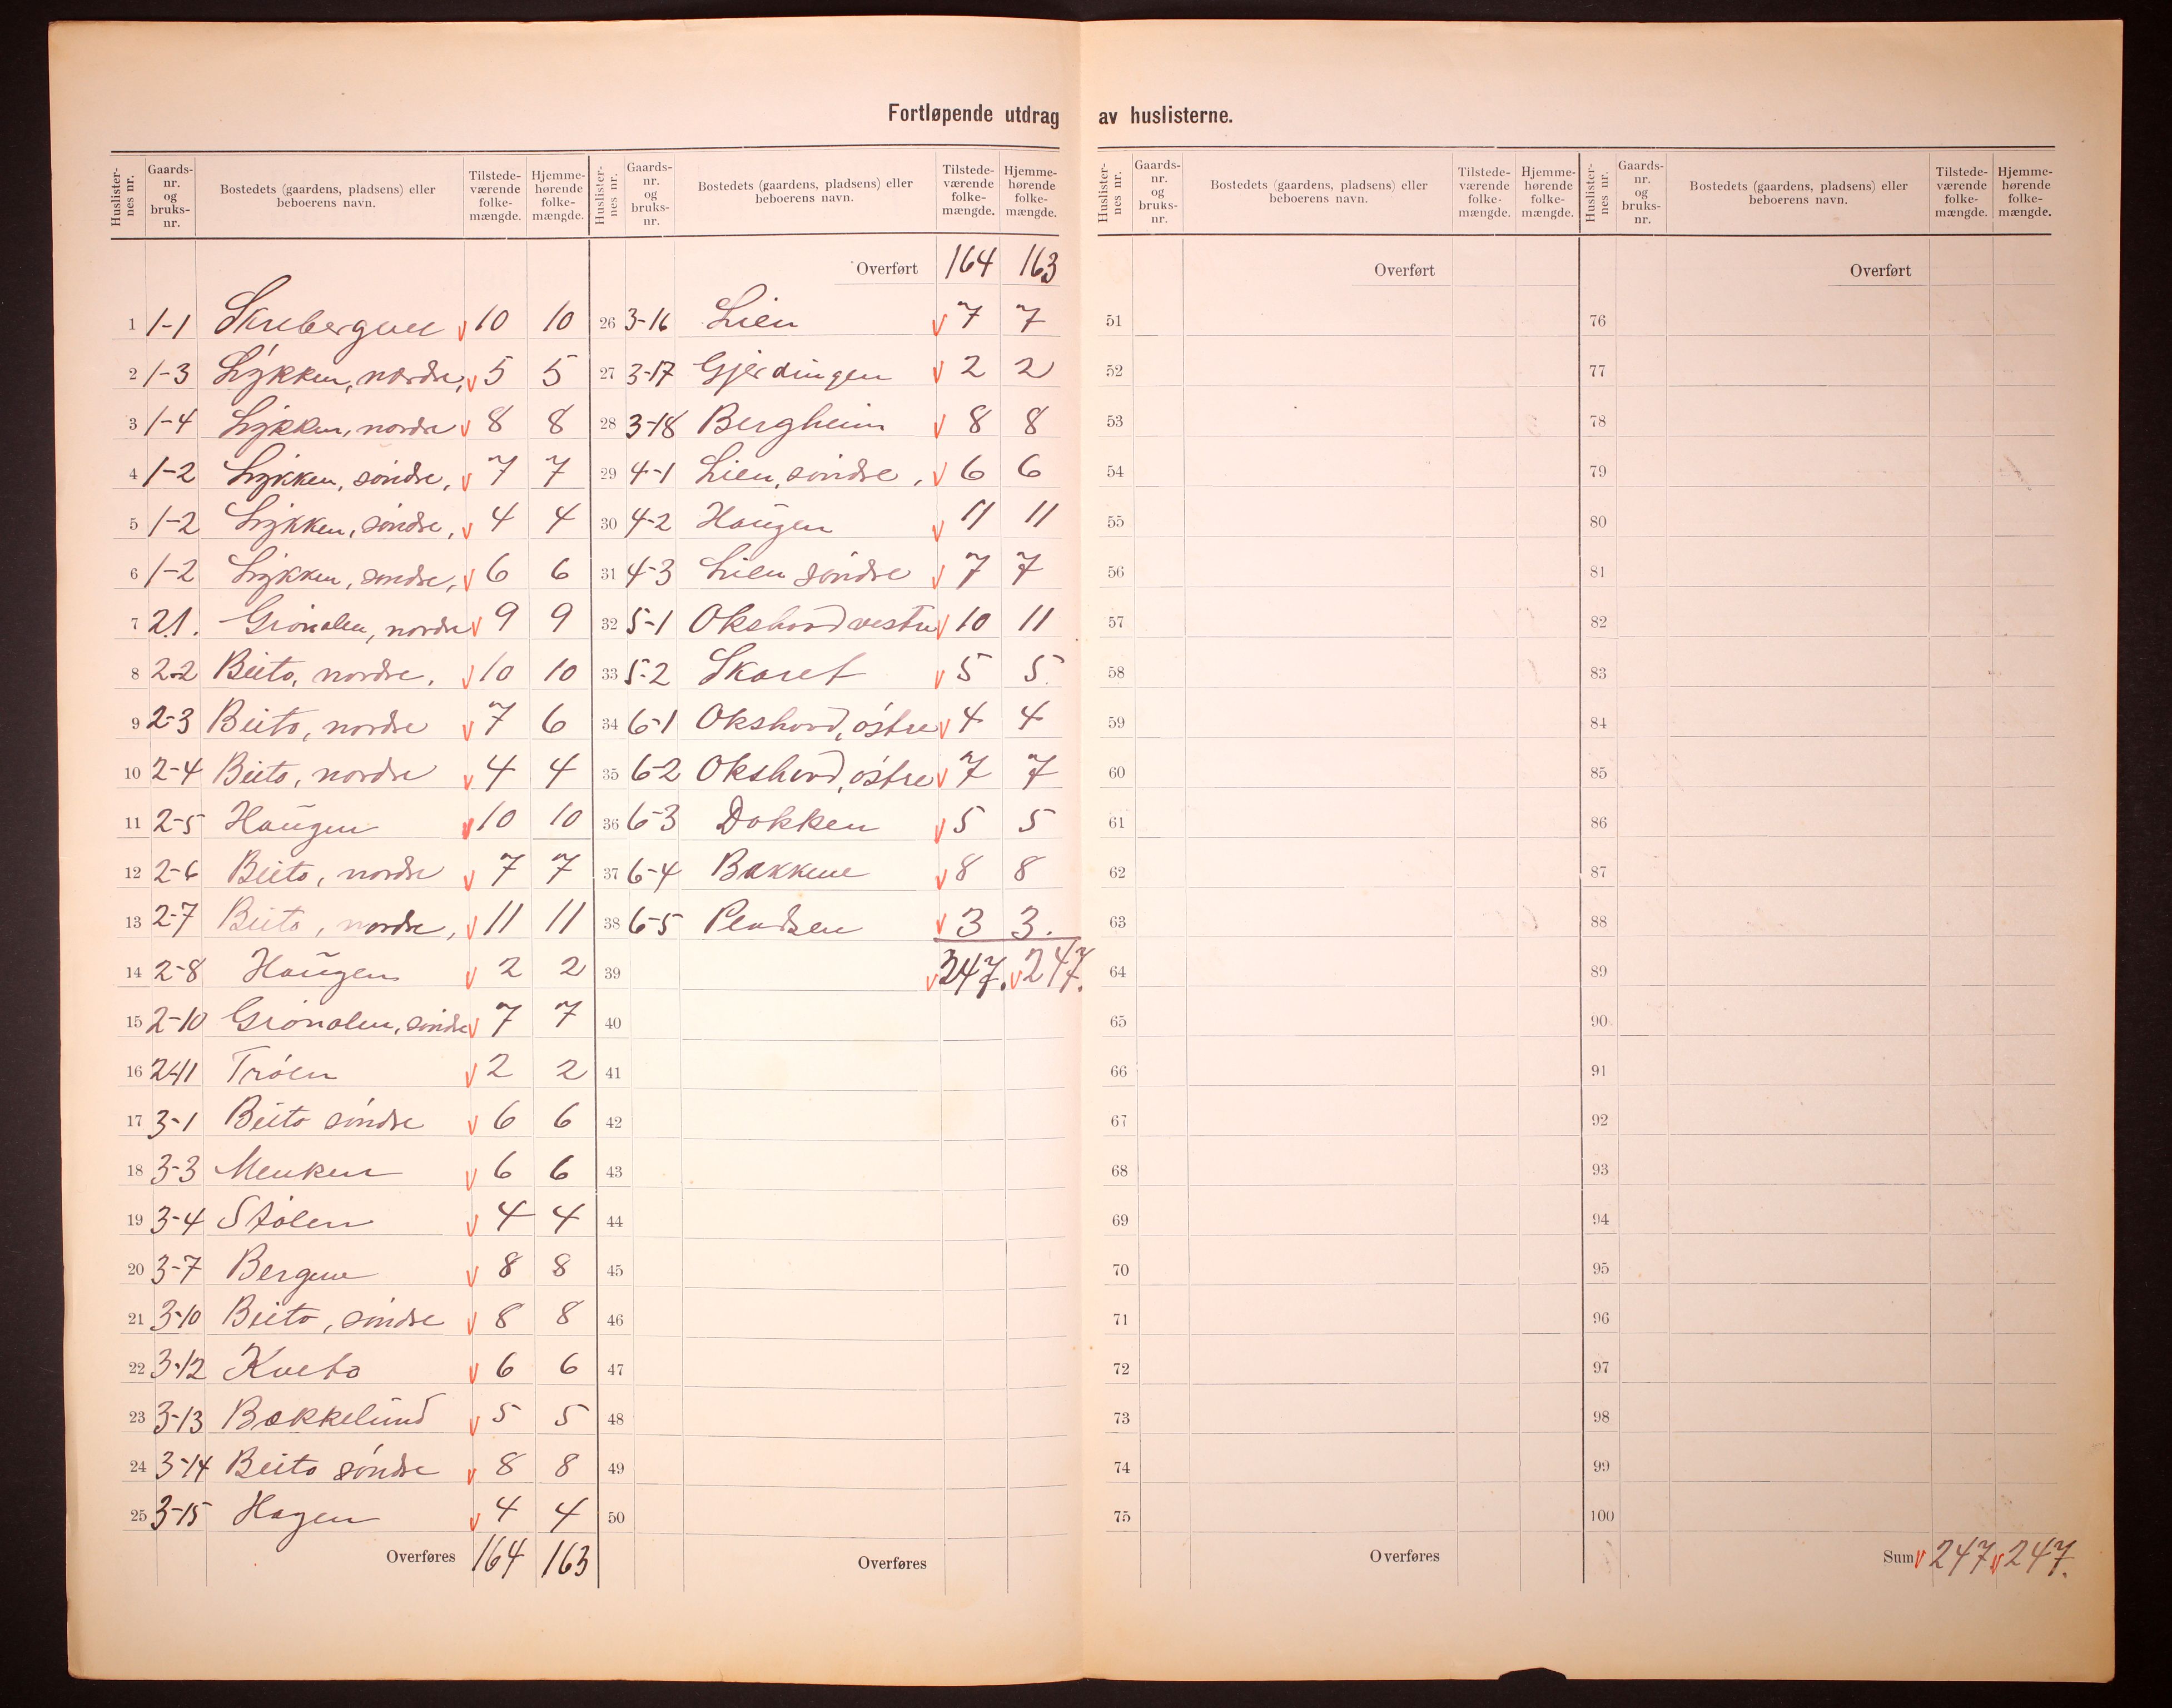 Fortløpende utdrag av huslisterne.
Huslisternes nr. Gaards-nr. og bruks-nr. Bostedets (gaardens, pladsens) eller beboerens navn. Tilstedeværende folkemængde. Hjemmehørende folkemængde.
1 1-1 10 10
2 1-3 Lykken, nordre, 5 5
3 1-4 Lykken, nordre 8 8
4 1-2 Lykken, søndre, 7 7
5 1-2 Lykken, søndre, 4 4
6 1-2 Lykken, søndre, 6 6
7 2.1. Grønolen, nordre 9 9
8 2-2 Beito, nordre. 10 10
9 2-3 Beito, nordre 7 6
10 2-4 Beito, nordre 4 4
11 2-5 Haugen 10 10
12 2-6 Beito, nordre 7 7
13 2-7 Beito, nordre, 11 11
14 2-8 Haugen 2 2
15 2-10 Grønolen, søndre 7 7
16 2-11 Trøen 2 2
17 3-1 Beito søndre 6 6
18 3-3 Menken 6 6
19 3-4 Stølen 4 4
20 3-7 Bergene 8 8
21 3-10 Beito, søndre 8 8
22 3-12 Kveto 6 6
23 3-13 Bækkelund 5 5
24 3-14 Beito søndre 8 8
25 3-15 Hagen 4 4
Overføres 164 163
Huslisternes nr. Gaards-nr. og bruks-nr. Bostedets (gaardens, pladsens) eller beboerens navn. Tilstedeværende folkemængde. Hjemmehørende folkemængde.
Overført 164 163
26 3-16 Lien 7 7
27 3-17 Gjerdingen 2 2
28 3-18 Bergheim 8 8
29 4-1 Lien, søndre, 6 6
30 4-2 Haugen 11 11
31 4-3 Lien søndre 7 7
32 5-1 Okshovd vestre 10 11
33 5-2 Skaret 5 5.
34 6-1 Okshovd, østre 4 4
35 6-2 Okshovd, østre 7 7
36 6-3 Dokken 5 5
37 6-4 Bakkene 8 8
38 6-5 Pladsen 3 3.
39 247. 247.
40
41
42
43
44
45
46
47
48
49
50
Overføres
Huslisternes nr. Gaards-nr. og bruks-nr. Bostedets (gaardens, pladsens) eller beboerens navn. Tilstedeværende folkemængde. Hjemmehørende folkemængde.
Overført
51
52
53
54
55
56
57
58
59
60
61
62
63
64
65
66
67
68
69
70
71
72
73
74
75
Overføres
Huslisternes nr. Gaards-nr. og bruks-nr. Bostedets (gaardens, pladsens) eller beboerens navn. Tilstedeværende folkemængde. Hjemmehørende folkemængde.
Overført
76
77
78
79
80
81
82
83
84
85
86
87
88
89
90
91
92
93
94
95
96
97
98
99
100
Sum 247 247.